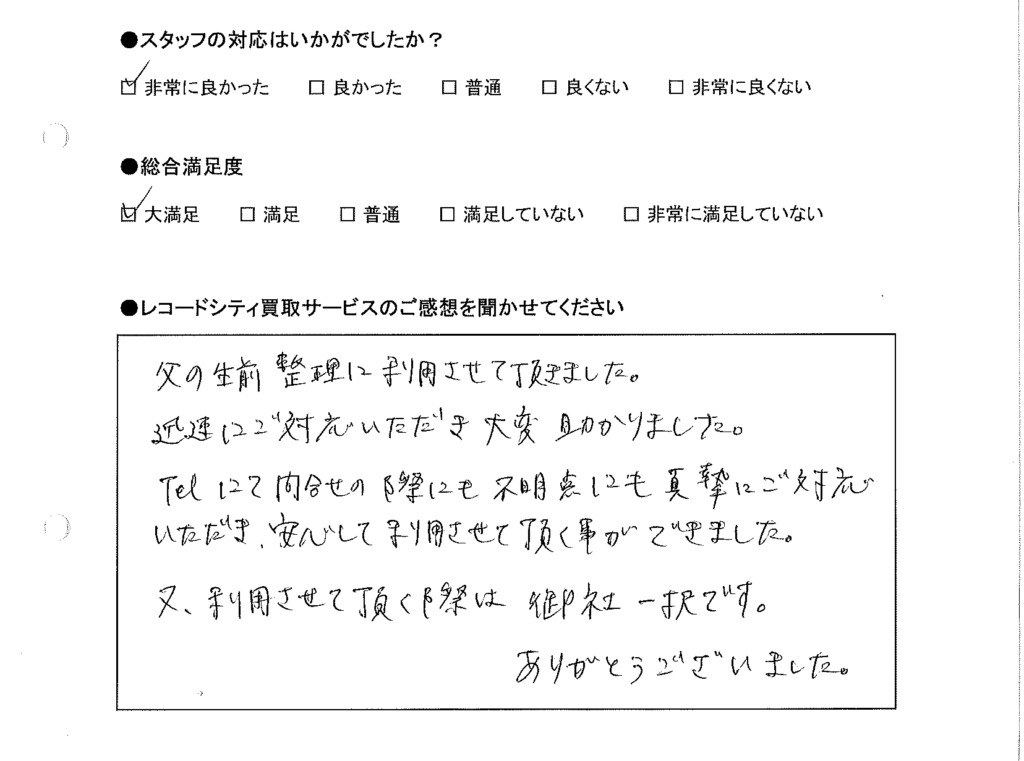 ●スタッフの対応はいかがでしたか?
☑ 非常に良かった □ 良かった □ 普通 □ 良くない □ 非常に良くない
●総合満足度
☑ 大満足 □ 満足 □ 普通 □ 満足していない □ 非常に満足していない
●レコードシティ買取サービスのご感想を聞かせてください
父の生前整理に利用させて頂きました。
迅速にご対応いただき大変助かりました。
Telにて問合せの際にも不明点にも真摯にご対応
いただき、安心して利用させて頂く事ができました。
又、利用させて頂く際は御社一択です。
ありがとうございました。